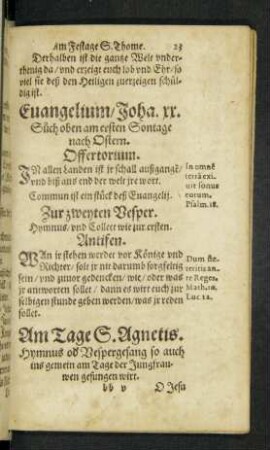 Am Festage S. Thome. 23
Derhalben ist die gantze Welt vnder-
thenig da / vnd erzeigt euch lob vnd Ehr / so
viel sie deß den Heiligen zuerzeigen schül-
dig ist.
Euangelium / Joha. xx.
Süch oben am ersten Sontage
nach Ostern.
Offertorium.
IN allen Landen ist jr schall außgangẽ /
vnd biß ans end der welt jre wort.
In omnẽ
terrã exi-
uit sonus
eorum.
Psalm. 18.
Commun ist ein stück deß Euangelij.
Zur zweyten Vesper.
Hymnus / vnd Collect wie zur ersten.
Antifen.
WAn jr stehen werdet vor Könige vnd
Richter / solt jr nit darumb sorgfeltig
sein / vnd zuuor gedencken / wie / oder was
jr antworten sollet / dann es wirt euch zur
selbigen stunde geben werden / was jr reden
sollet.
Dum ste-
teritis an-
te Reges.
Math. 10.
Luc. 12.
Am Tage S. Agnetis.
Hymnus oď Vespergesang so auch
ins gemein am Tage der Jungfrau-
wen gesungen wirt.
bb v O Jesu